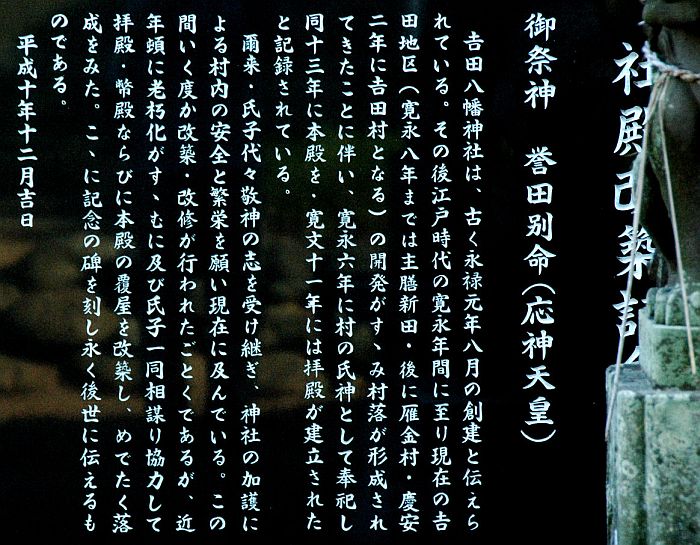 社殿改築記
御祭神 誉田別命(応神天皇)
吉田八幡神社は、古く永禄元年八月の創建と伝えら
れている。その後江戸時代の寛永年間に至り現在の吉
田地区(寛永八年までは主膳新田・後に雁金村・慶安
二年に吉田村となる)の開発がすゝみ村落が形成され
てきたことに伴い、寛永六年に村の氏神として奉祀し
同十三年に本殿を・寛文十一年には拝殿が建立された
と記録されている。
爾来・氏子代々敬神の志を受け継ぎ、神社の加護に
よる村内の安全と繁栄を願い現在に及んでいる。この
間いく度か改築・改修が行われたごとくであるが、近
年頓に老朽化がすゝむに及び氏子一同相謀り協力して
拝殿・幣殿ならびに本殿の覆屋を改築し、めでたく落
成をみた。こゝに記念の碑を刻し永く後世に伝えるも
のである。
平成十年十二月吉日